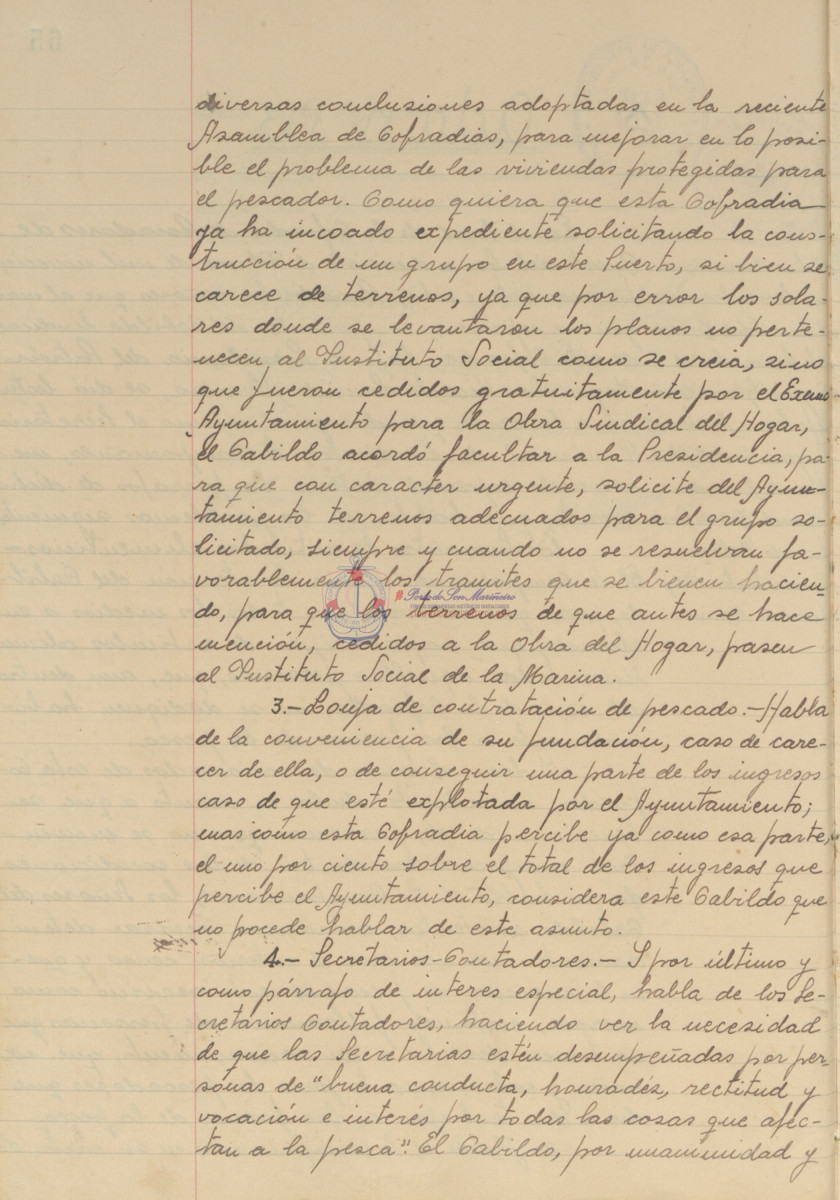 diversas conclusiones adoptadas en la reciente
Asamblea de Cofradias, para mejorar en lo posi-
ble el problema de las viviendas protegidas para
el pescador. Como quiera que esta Cofradia
ya ha incoado expediente solicitando la cons-
trucción de un grupo en este Puerto, si bien se
carece de terrenos, ya que por error los sola-
res donde se levantaron los planos no perte-
necen al Instituto Social como se creia, sino
que fueron cedidos gratuitamente por el Excmo
Ayuntamiento para la Obra Sindical del Hogar,
el Cabildo acordó facultar a la Presidencia, pa-
ra que con caracter urgente, solicite del Ayun-
tamiento terrenos adecuados para el grupo so-
licitado, siempre y cuando no se resuelvan fa-
vorablemente los tramites que se bienen hacien-
do, para que los terrenos de que antes se hace
mención, cedidos a la Obra del Hogar, pasen
al Instituto Social de la Marina.
3.- Lonja de contratación de pescado.- Habla
de la conveniencia de su fundación, caso de care-
cer de ella, o de conseguir una parte de los ingresos
caso de que esté explotada por el Ayuntamiento;
mas como esta Cofradia percibe ya como esa parte,
el uno por ciento sobre el total de los ingresos que
percibe el Ayuntamiento, considera este Cabildo que
no procede hablar de este asunto.
4.- Secretarios-Contadores.- Y por último y
como párrafo de interes especial, habla de los Se-
cretarios Contadores, haciendo ver la necesidad
de que las Secretarias estén desempeñadas por per-
sonas de "buena conducta, honradéz, rectitud y
vocación e interés por todas las cosas que afec-
tan a la pesca". El Cabildo, por unanimidad y
Porto do Son Mariñeiro